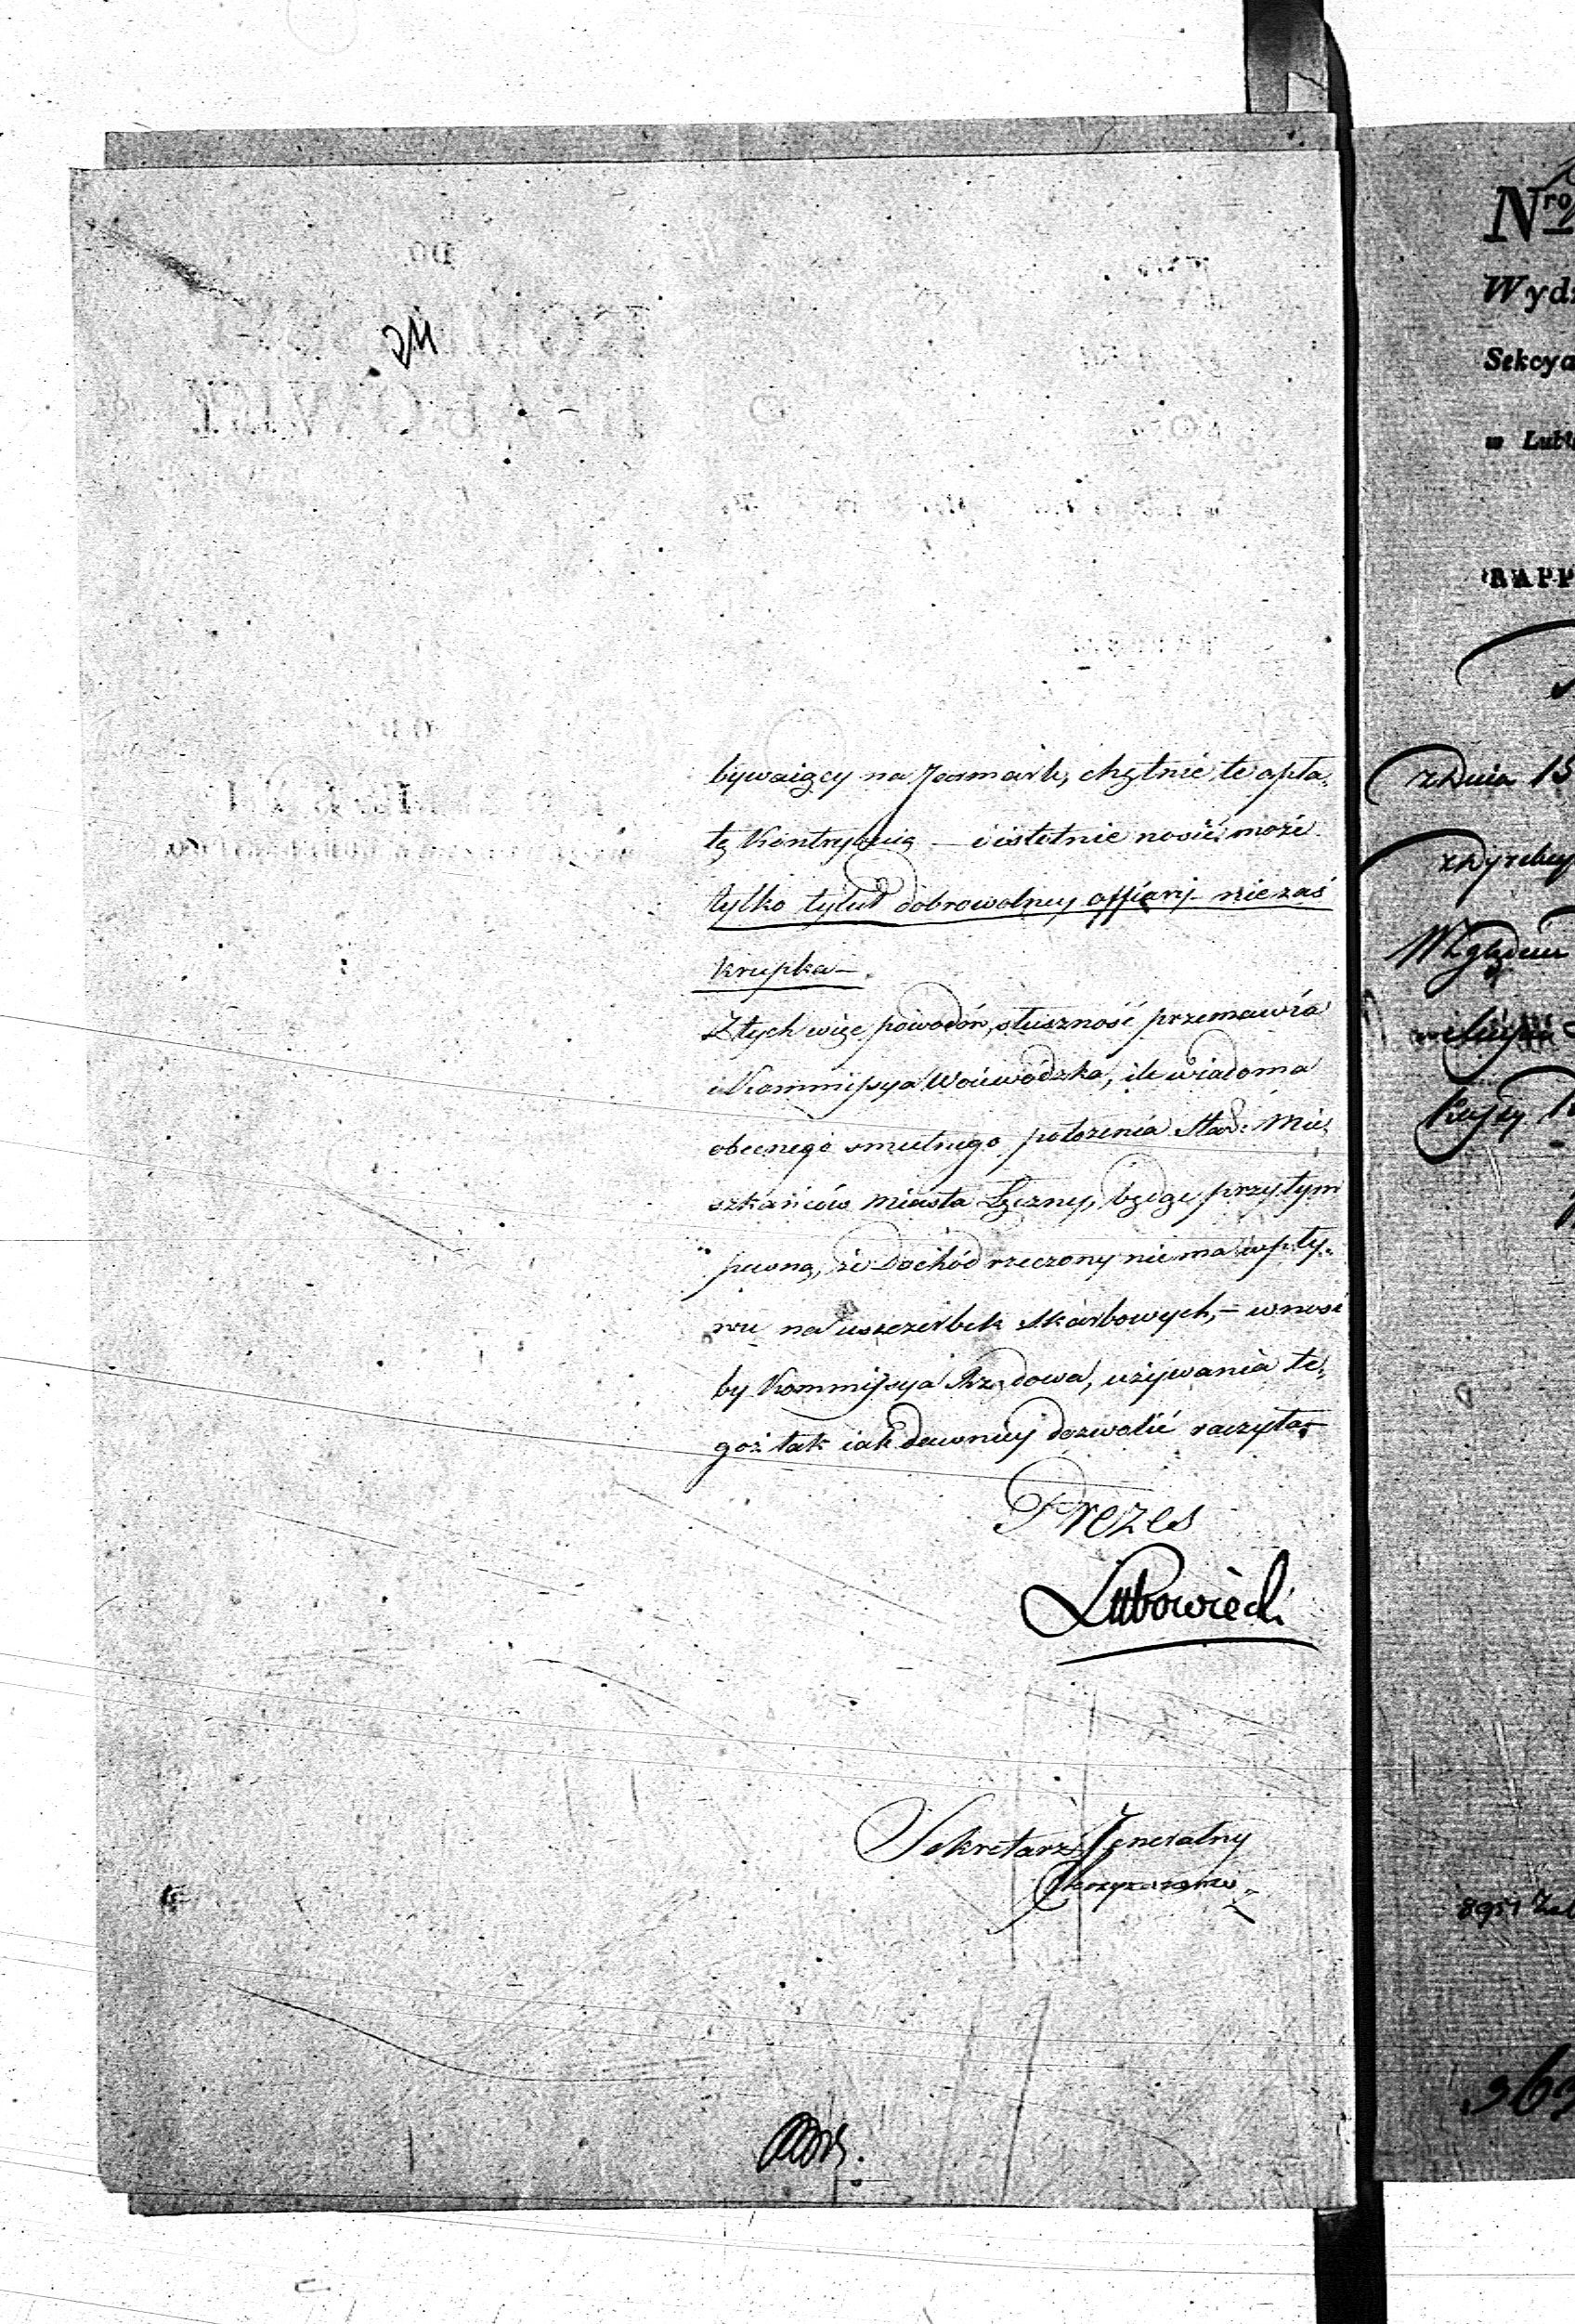 24
bywaiący na Jearmark, chętnie te opła„
tę Kontrybuią — i istotnie nosić może
tylko tytuł dobrowolney offiary — nie zaś
Krupka —
Z tych więc powodów, słuszność przemawia
i Kommissya Woiewódzka, ile wiadoma
obecnego smutnego położenia Star: Mie„
szkańców Miasta Łęczny, będąc przytym
pewną, że Dochód rzeczony nie ma wpły„
wu na uszczerbek Skarbowych, — wnosi
by Kommissya Rządowa, używania te„
goż tak iak dawniey dozwolić raczyła —
Prezes
Lubowiecki
Sekretarz Jeneralny
Nro
Wydz
Sekcya
w Lubl
RAPP
z Dnia 15
Względem
8951